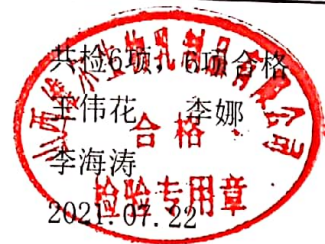 共检6项，6项合格
王伟花 李娜
李海涛
2021.07.22
合格
检验专用章